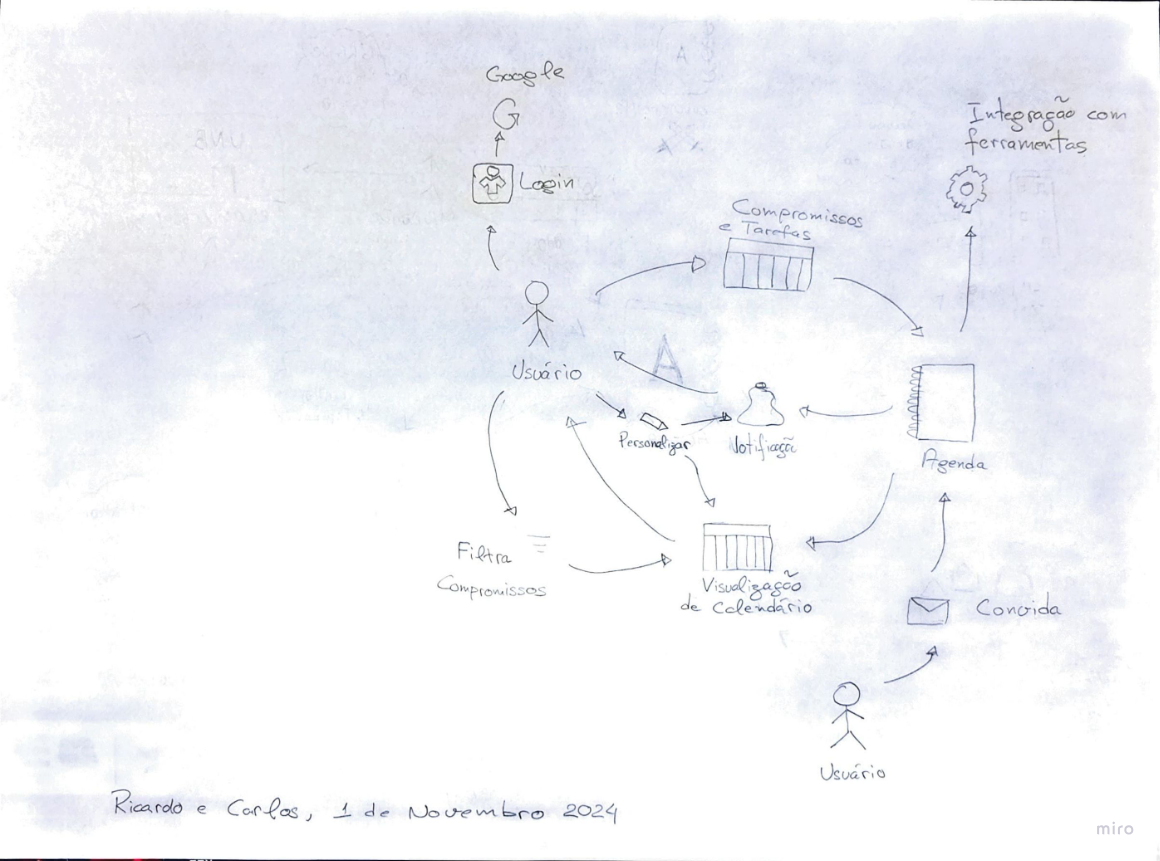 Google
G
Login
Integração com
ferramentas
Compromissos
e Tarefas
Usuário
Personalizar
Notificação
Agenda
Filtra
Compromissos
Visualização
de Calendário
Convida
Usuário
Ricardo e Carlos, 1 de Novembro 2024
A
miro